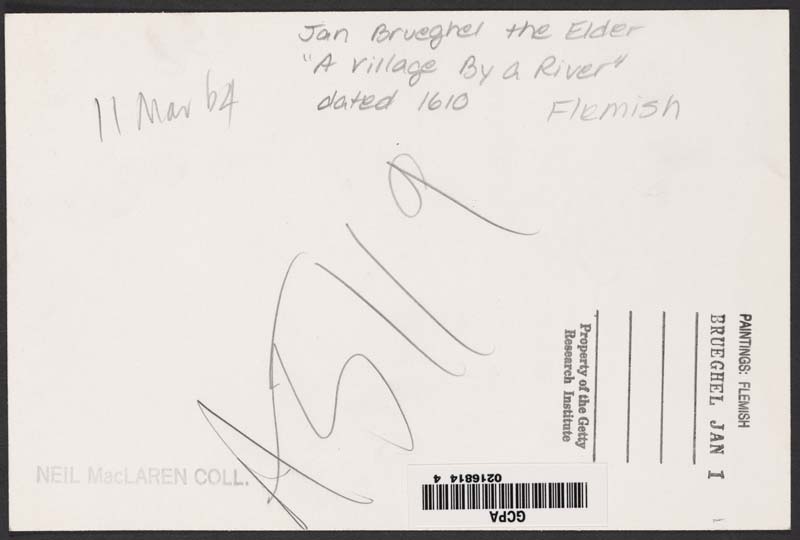 Jan Brueghel the Elder
"A Village By a River"
dated 1610 Flemish
11 Mar 64
PAINTINGS: FLEMISH
BRUEGHEL JAN I
Property of the Getty
Research Institute
NEIL MacLAREN COLL.
GCPA
0216814 4